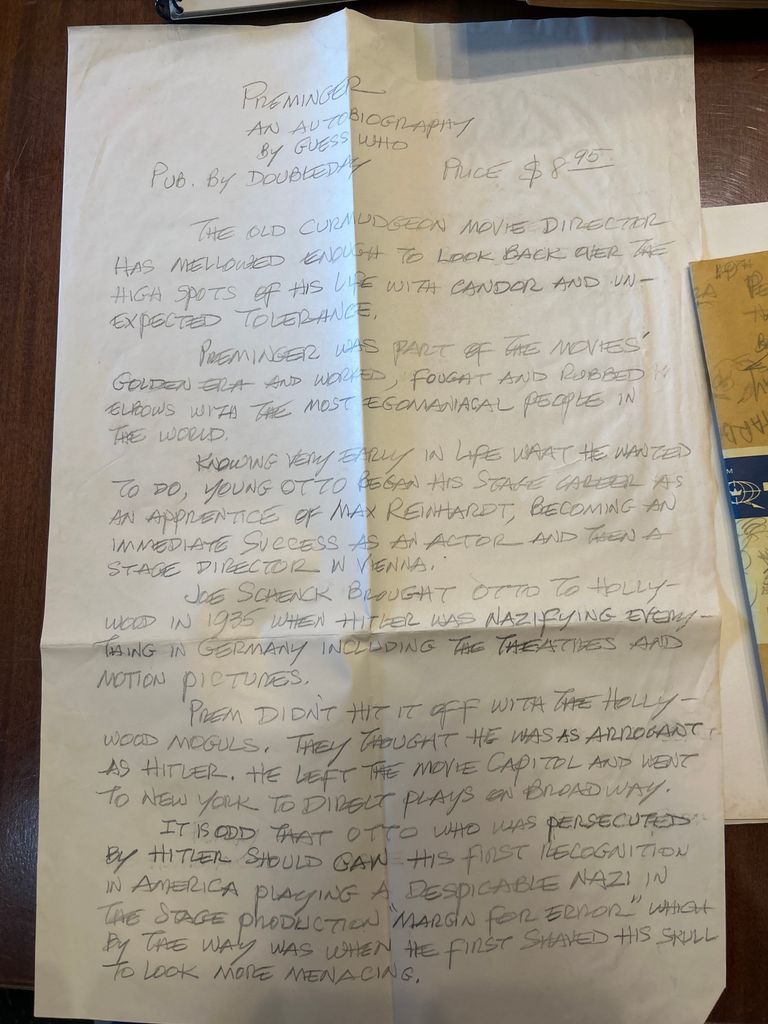 PREMINGER
AN AUTOBIOGRAPHY
BY GUESS WHO
PUB. BY DOUBLEDAY PRICE $8.95
THE OLD CURMUDGEON MOVIE DIRECTOR
HAS MELLOWED ENOUGH TO LOOK BACK OVER THE
HIGH SPOTS OF HIS LIFE WITH CANDOR AND UN-
EXPECTED TOLERANCE.
PREMINGER WAS PART OF THE MOVIES'
GOLDEN ERA AND WORKED, FOUGHT AND RUBBED
ELBOWS WITH THE MOST EGOMANIACAL PEOPLE IN
THE WORLD.
KNOWING VERY EARLY IN LIFE WHAT HE WANTED
TO DO, YOUNG OTTO BEGAN HIS STAGE CAREER AS
AN APPRENTICE OF MAX REINHARDT, BECOMING AN
IMMEDIATE SUCCESS AS AN ACTOR AND THEN A
STAGE DIRECTOR IN VIENNA.
JOE SCHENCK BROUGHT OTTO TO HOLLY-
WOOD IN 1935 WHEN HITLER WAS NAZIFYING EVERY-
THING IN GERMANY INCLUDING THE THEATRES AND
MOTION PICTURES.
PREM DIDN'T HIT IT OFF WITH THE HOLLY-
WOOD MOGULS. THEY THOUGHT HE WAS AS ARROGANT
AS HITLER. HE LEFT THE MOVIE CAPITOL AND WENT
TO NEW YORK TO DIRECT PLAYS ON BROADWAY.
IT IS ODD THAT OTTO WHO WAS PERSECUTED
BY HITLER SHOULD GAIN HIS FIRST RECOGNITION
IN AMERICA PLAYING A DESPICABLE NAZI IN
THE STAGE PRODUCTION "MARGIN FOR ERROR" WHICH
BY THE WAY WAS WHEN HE FIRST SHAVED HIS SKULL
TO LOOK MORE MENACING.